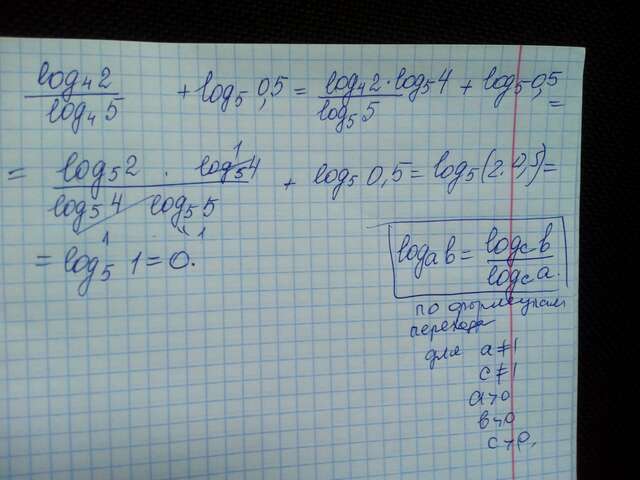 log₄2 / log₄5 + log₅0,5 = log₄2·log₅4 / log₅5 + log₅0,5 =
= log₅2 · log₅4 / log₅4 log₅5 + log₅0,5 = log₅(2·0,5) =
1
1 1
= log₅1 = 0.
logₐb = log_c b / log_c a.
по формулам
перехода
для a≠1
c≠1
a>0
b>0
c>0.